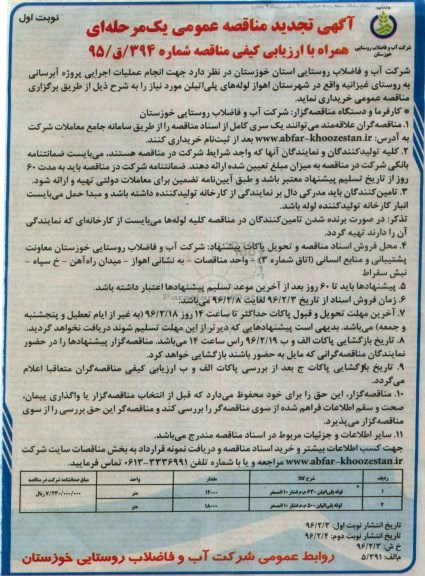 نوبت اول
آگهی تجدید مناقصه عمومی یک‌مرحله‌ای
همراه با ارزیابی کیفی مناقصه شماره ۳۹۴/ق/۹۵
شرکت آب و فاضلاب روستایی
خوزستان
شرکت آب و فاضلاب روستایی استان خوزستان در نظر دارد جهت انجام عملیات اجرایی پروژه آبرسانی
به روستای غیزانیه واقع در شهرستان اهواز لوله‌های پلی‌اتیلن مورد نیاز را به شرح ذیل از طریق برگزاری
مناقصه عمومی خریداری نماید.
* کارفرما و دستگاه مناقصه‌گزار: شرکت آب و فاضلاب روستایی خوزستان
۱. مناقصه‌گران علاقه‌مند می‌توانند یک سری کامل از اسناد مناقصه را از طریق سامانه جامع معاملات شرکت
به آدرس: www.abfar-khoozestan.ir بعد از ثبت‌نام خریداری کنند.
۲. کلیه تولیدکنندگان و نمایندگان آنها که واجد شرایط شرکت در مناقصه هستند، می‌بایست ضمانتنامه
بانکی شرکت در مناقصه به میزان مبلغ تعیین شده ارائه دهند. ضمانتنامه شرکت در مناقصه باید به مدت ۶۰
روز از تاریخ تسلیم پیشنهاد معتبر باشد و طبق آیین‌نامه تضمین برای معاملات دولتی تهیه و ارائه شود.
۳. تامین‌کنندگان باید مدرکی دال بر نمایندگی از کارخانه تولیدکننده داشته باشد و مبدا حمل می‌بایست
انبار کارخانه تولیدکننده لوله باشد.
تذکر: در صورت برنده شدن تامین‌کنندگان در مناقصه کلیه لوله‌ها می‌بایست از کارخانه‌ای که نمایندگی
آن را دارند تهیه گردد.
۴. محل فروش اسناد مناقصه و تحویل پاکات پیشنهاد: شرکت آب و فاضلاب روستایی خوزستان معاونت
پشتیبانی و منابع انسانی (اتاق شماره ۳) - واحد مناقصات - به نشانی اهواز - میدان راه‌آهن - خ سپاه -
نبش سقراط
۵. پیشنهادها باید تا ۶۰ روز بعد از آخرین موعد تسلیم پیشنهادها اعتبار داشته باشد.
۶. زمان فروش اسناد از تاریخ ۹۶/۲/۳ لغایت ۹۶/۲/۸ می‌باشد.
۷. آخرین مهلت تحویل و قبول پاکات حداکثر تا ساعت ۱۴ روز ۹۶/۲/۱۸ (به غیر از ایام تعطیل و پنجشنبه
و جمعه) می‌باشد. بدیهی است پیشنهادهایی که دیرتر از این مهلت تسلیم شوند دریافت نخواهد گردید.
۸. تاریخ بازگشایی پاکات الف و ب ۹۶/۲/۱۹ راس ساعت ۱۴ می‌باشد. مناقصه‌گزار پیشنهادها را در حضور
نمایندگان مناقصه‌گرانی که مایل به حضور باشند بازگشایی خواهد کرد.
۹. تاریخ بازگشایی پاکات ج بعد از بررسی پاکات الف و ب ارزیابی کیفی مناقصه‌گران متعاقبا اعلام
می‌گردد.
۱۰. مناقصه‌گزار، این حق را برای خود محفوظ می‌دارد که قبل از انتخاب مناقصه‌گزار یا واگذاری پیمان،
صحت و سقم اطلاعات فراهم شده از سوی مناقصه‌گر را بررسی کند و مناقصه‌گر این حق بررسی را از سوی
مناقصه‌گزار می‌پذیرد.
۱۱. سایر اطلاعات و جزئیات مربوط در اسناد مناقصه مندرج می‌باشد.
جهت کسب اطلاعات بیشتر و خرید اسناد مناقصه و دریافت نمونه قرارداد به بخش مناقصات سایت شرکت
www.abfar-khoozestan.ir مراجعه و یا با شماره تلفن ۳۳۳۶۹۹۱-۰۶۱۳ تماس فرمایید.
ردیف شرح کالا مقدار واحد مبلغ ضمانتنامه شرکت در مناقصه
۱ لوله پلی‌اتیلن ۶۳۰ م.م فشار ۱۰ اتمسفر ۱۶۰۰۰ متر ۷/۴۳۰/۰۰۰/۰۰۰ ریال
۲ لوله پلی‌اتیلن ۵۰۰ م.م فشار ۱۰ اتمسفر ۱۸۰۰۰ متر
تاریخ انتشار نوبت اول: ۹۶/۲/۳
تاریخ انتشار نوبت دوم: ۹۶/۲/۴
خ ش: ۹۶/۲/۳
م‌الف: ۵/۳۹۱
روابط عمومی شرکت آب و فاضلاب روستایی خوزستان